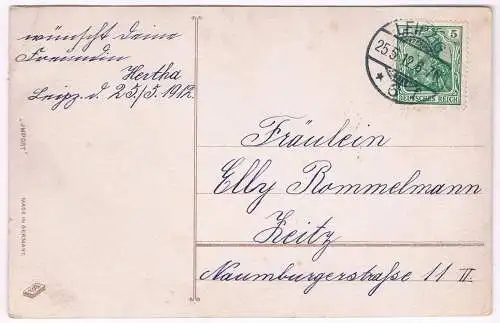 wünscht deine
Freundin
Hertha
Leipz. d. 25/5. 1912.
Fräulein
Elly Rommelmann
Zeitz
Naumburgerstraße 11 II.
LEIPZIG
25.5.12.8-
5
DEUTSCHES REICH
"IMPORT"
MADE IN GERMANY.